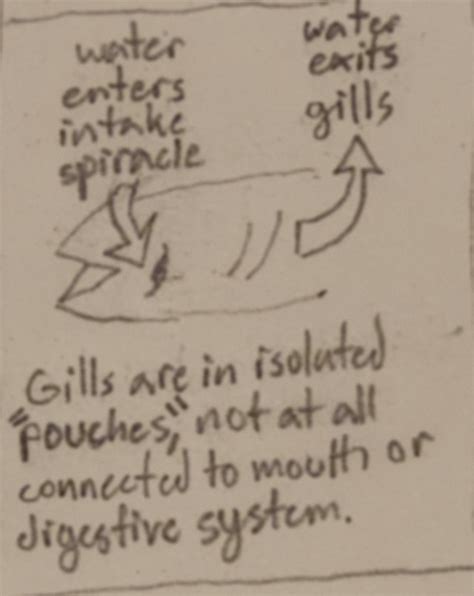 water
enters
intake
spiracle
water
exits
gills
Gills are in isolated
"pouches", not at all
connected to mouth or
digestive system.